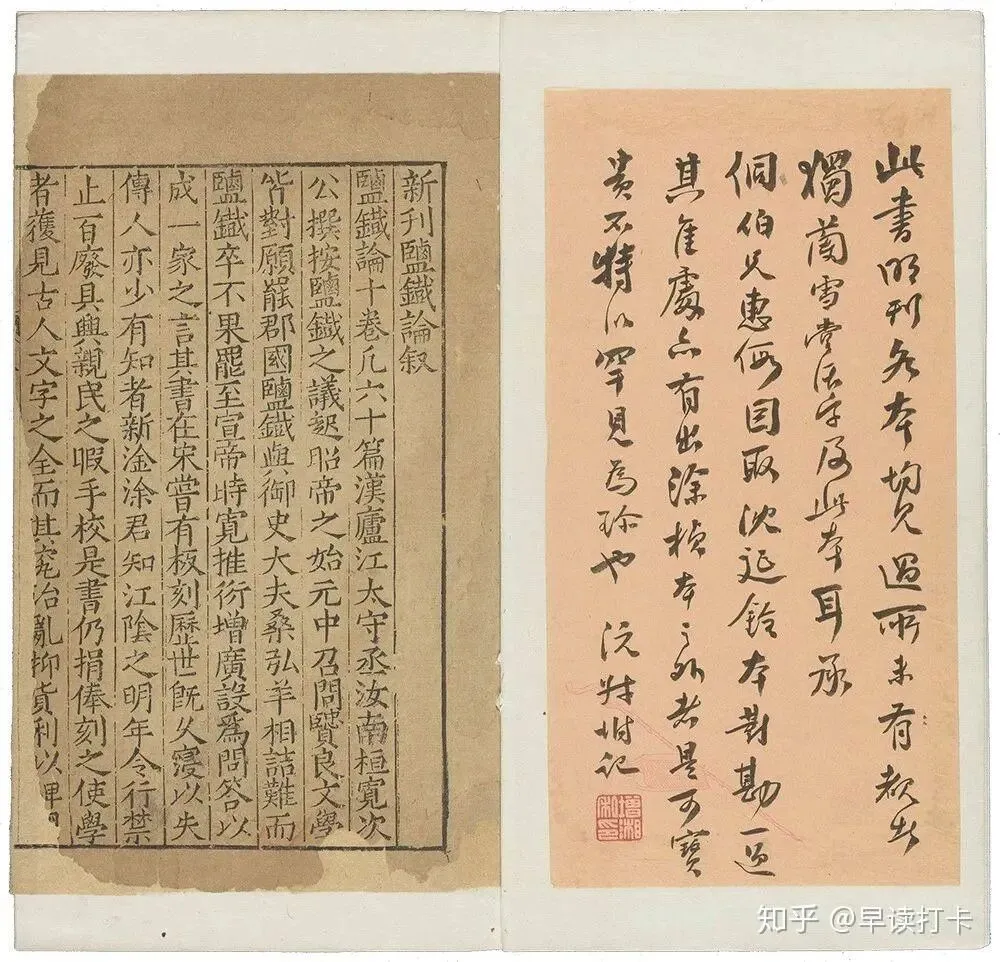 此書明刊各本均見過所未有覩者
獨蘭雪堂活字及此本耳承
侗伯兄惠假因取沈延銓本對勘一過
其佳處亦有出涂楨本之外者是可寶
貴不特以罕見為珍也 沅叔坿記
增湘私印
新刊鹽鐵論叙
鹽鐵論十卷凡六十篇漢廬江太守丞汝南桓寬次
公撰按鹽鐵之議起昭帝之始元中召問賢良文學
皆對願罷郡國鹽鐵與御史大夫桑弘羊相詰難而
鹽鐵卒不果罷至宣帝時寬推衍增廣設爲問答以
成一家之言其書在宋嘗有板刻歷世既久寖以失
傳人亦少有知者新淦涂君知江陰之明年令行禁
止百廢具興親民之暇手校是書仍捐俸刻之使學
者獲見古人文字之全而其究治亂抑貨利以裨
知乎 @早读打卡